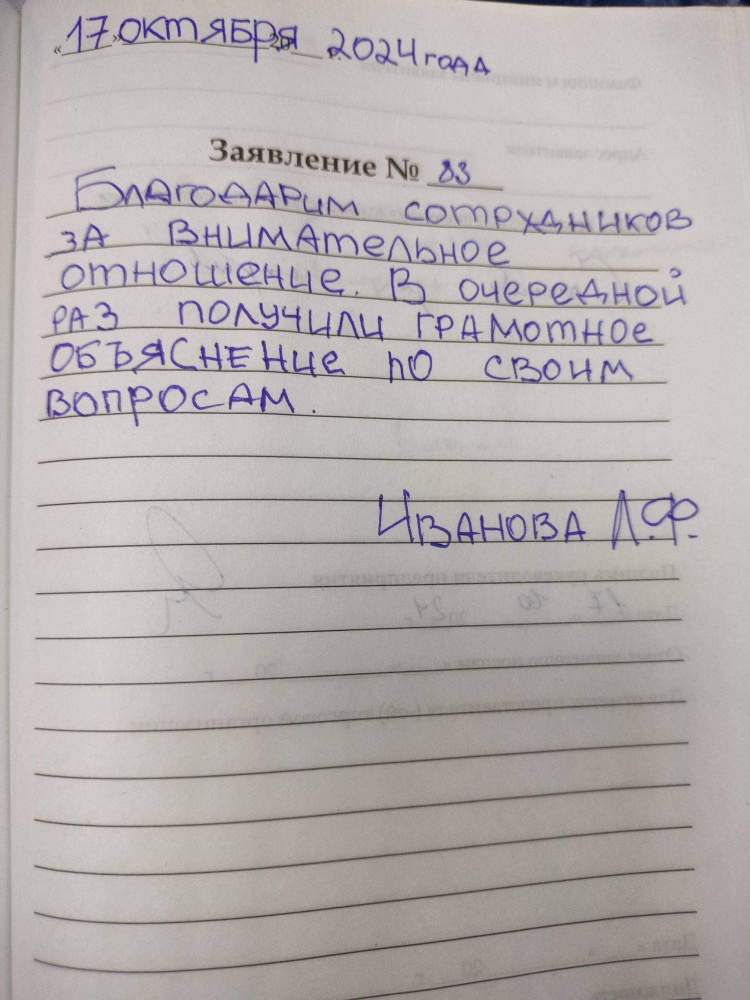 «17» октября 2024 года
Заявление № 83
Благодарим сотрудников
за внимательное
отношение. В очередной
раз получили грамотное
объяснение по своим
вопросам.
Иванова Л.Ф.